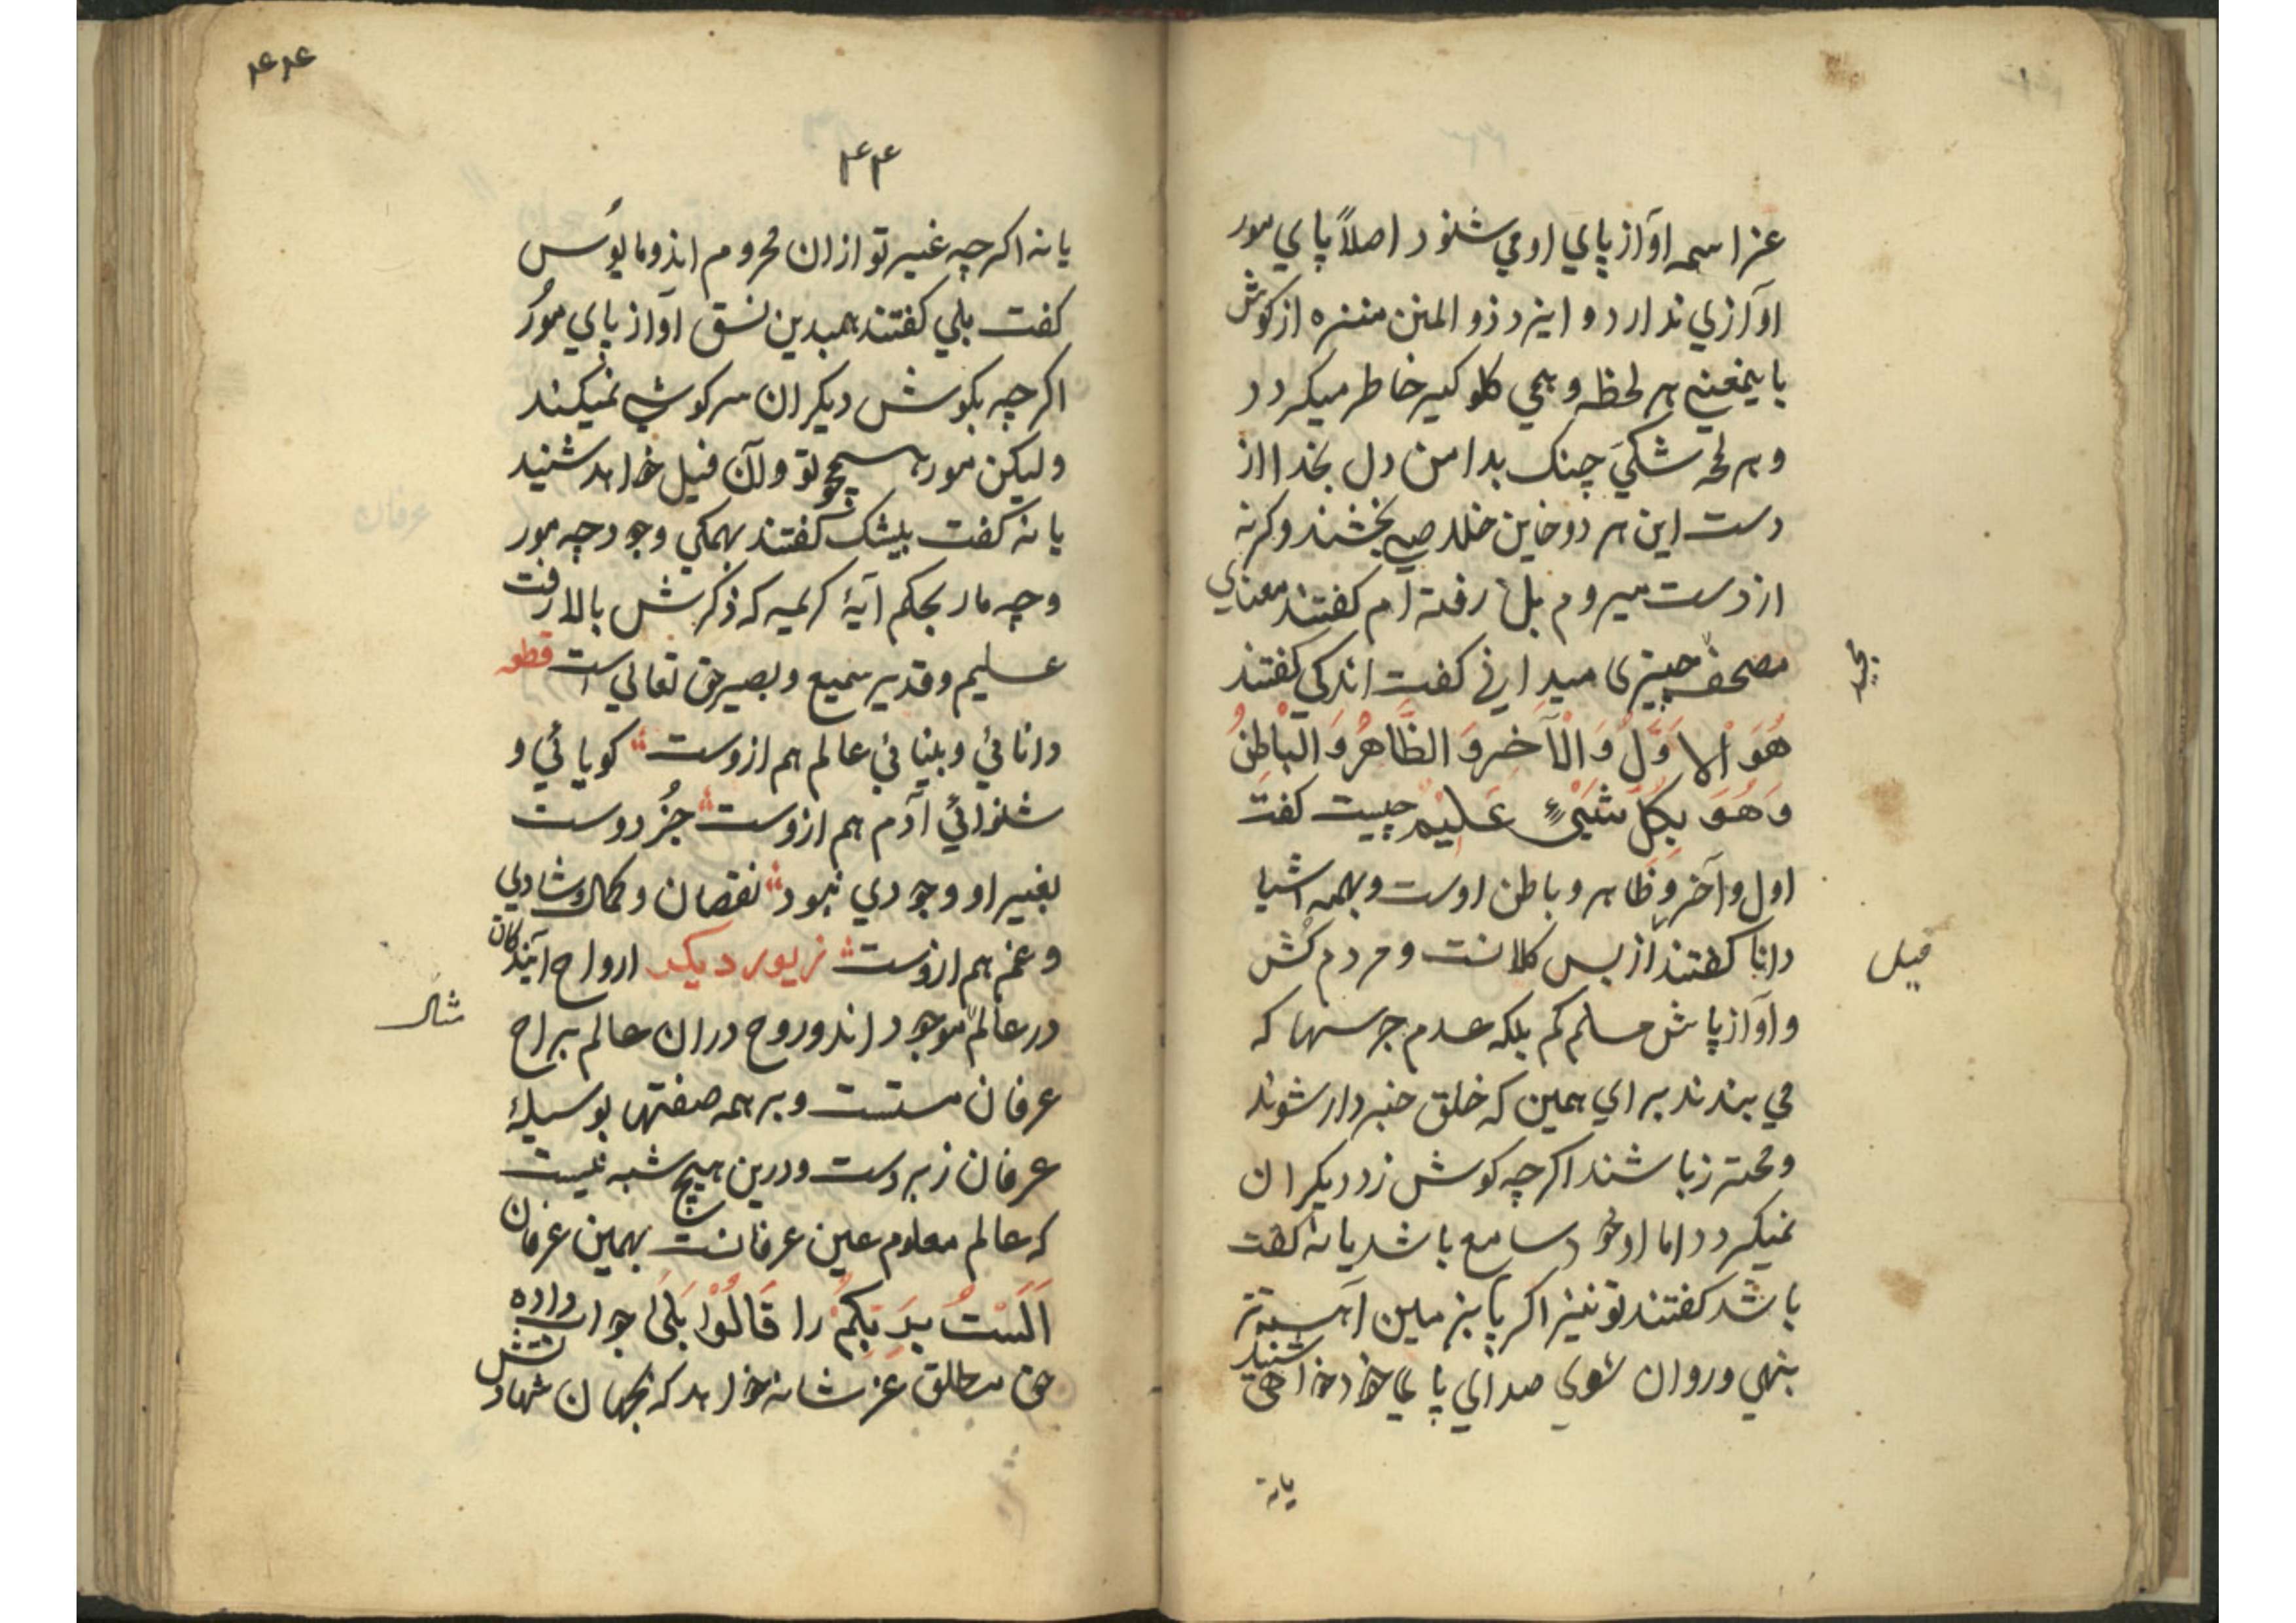 عز اسمه آواز پاي او مي شنود اصلاً پاي مور
آوازي ندارد و ايزد ذو المنن منزه از كوش
باينمعني هر لحظه وهمي كلوكير خاطر ميكردد
و هر لمحه شكي چنك بدامن دل بخدا از
دست اين هر دو خاين خلاصي بخشند وكرنه
از دست ميروم بل رفته ام كفتند معناي
مصحف چيزى ميداني كفت اندكي كفتند
مجيد
هُوَ الاَوَّلُ وَ الْآخِرُ وَ الظَّاهِرُ وَ الْبَاطِنُ
وَ هُوَ بِكُلِّ شَيْءٍ عَلِيْمٌ چيست كفت
اول و آخر و ظاهر و باطن اوست و بهمه اشيا
دانا كفتند از بس كلانست و مردم كش
فيل
و آواز پاش مسلم كم بلكه عدم جرسها كه
مي بندند براي همين كه خلق خبردار شوند
و محترز باشند اكرچه كوش زد ديكران
نميكردد اما او خود سامع باشد يا نه كفت
باشد كفتند تو نيز اكر پا بزمين آهسته تر
بنهي و روان شوي صداي پاي خود خواهي شنيد
يا نه
۴۴
يا نه اكرچه غير تو ازان محروم اند و مايوس
كفت بلي كفتند همبدين نسق آواز پاي مور
اكرچه بكوش ديكران سركوشي نميكند
وليكن مور همچو تو و آن فيل خواهد شنيد
يا نه كفت بيشك كفتند بهمكي وجود چه مور
و چه مار بحكم آيهٔ كريمه كه ذكرش بالا رفت
عليم و قدير سميع و بصير حق تعالي است قطعه
دانائي و بينائي عالم هم ازوست كويائي و
شنوائي آدم هم ازوست جُز دوست
بغير او وجودي نبود نقصان و كمال و شادي
و غم هم ازوست زيور ديكر ارواح آيندكان
در عالم موجود اند و روح دران عالم براح
مثال
عرفان مستست و بر همه صفتها بوسيلهٔ
عرفان زبردست و درين هيچ شبه نيست
كه عالم معلوم عين عرفانست بهمين عرفان
اَلَسْتُ بِرَبِّكُمْ را قَالُوْا بَلَى جواب داده
حق مطلق عز شانه خواهد كه بجهان شهادتش